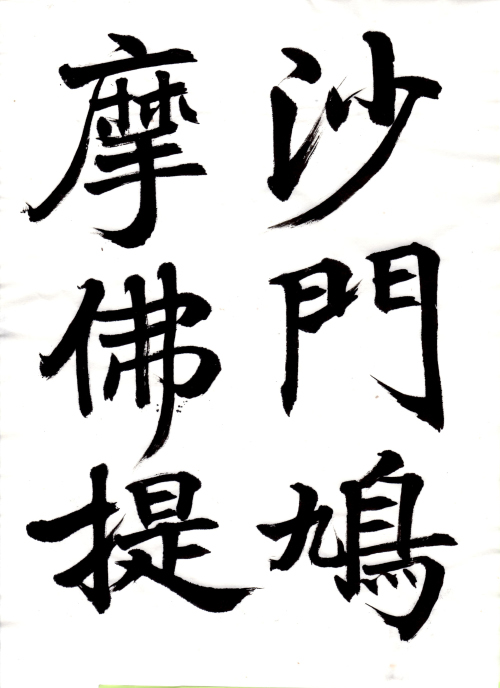 沙門鳩
摩佛提